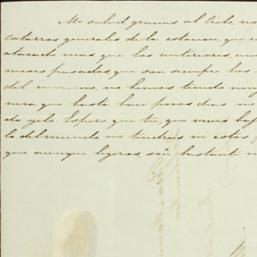 Mi salud, gracias al Cielo, no
catarros generales de la estacion, que
atacado mas que los anteriores, aun
meses pasados que son siempre los
del invierno, no hemos tenido nin
vera, que hasta hace pocos dias no
do yelo. Espero que tu, que vives baj
lo del mundo no tendras ni estas p
que aunque ligeras, son bastante m